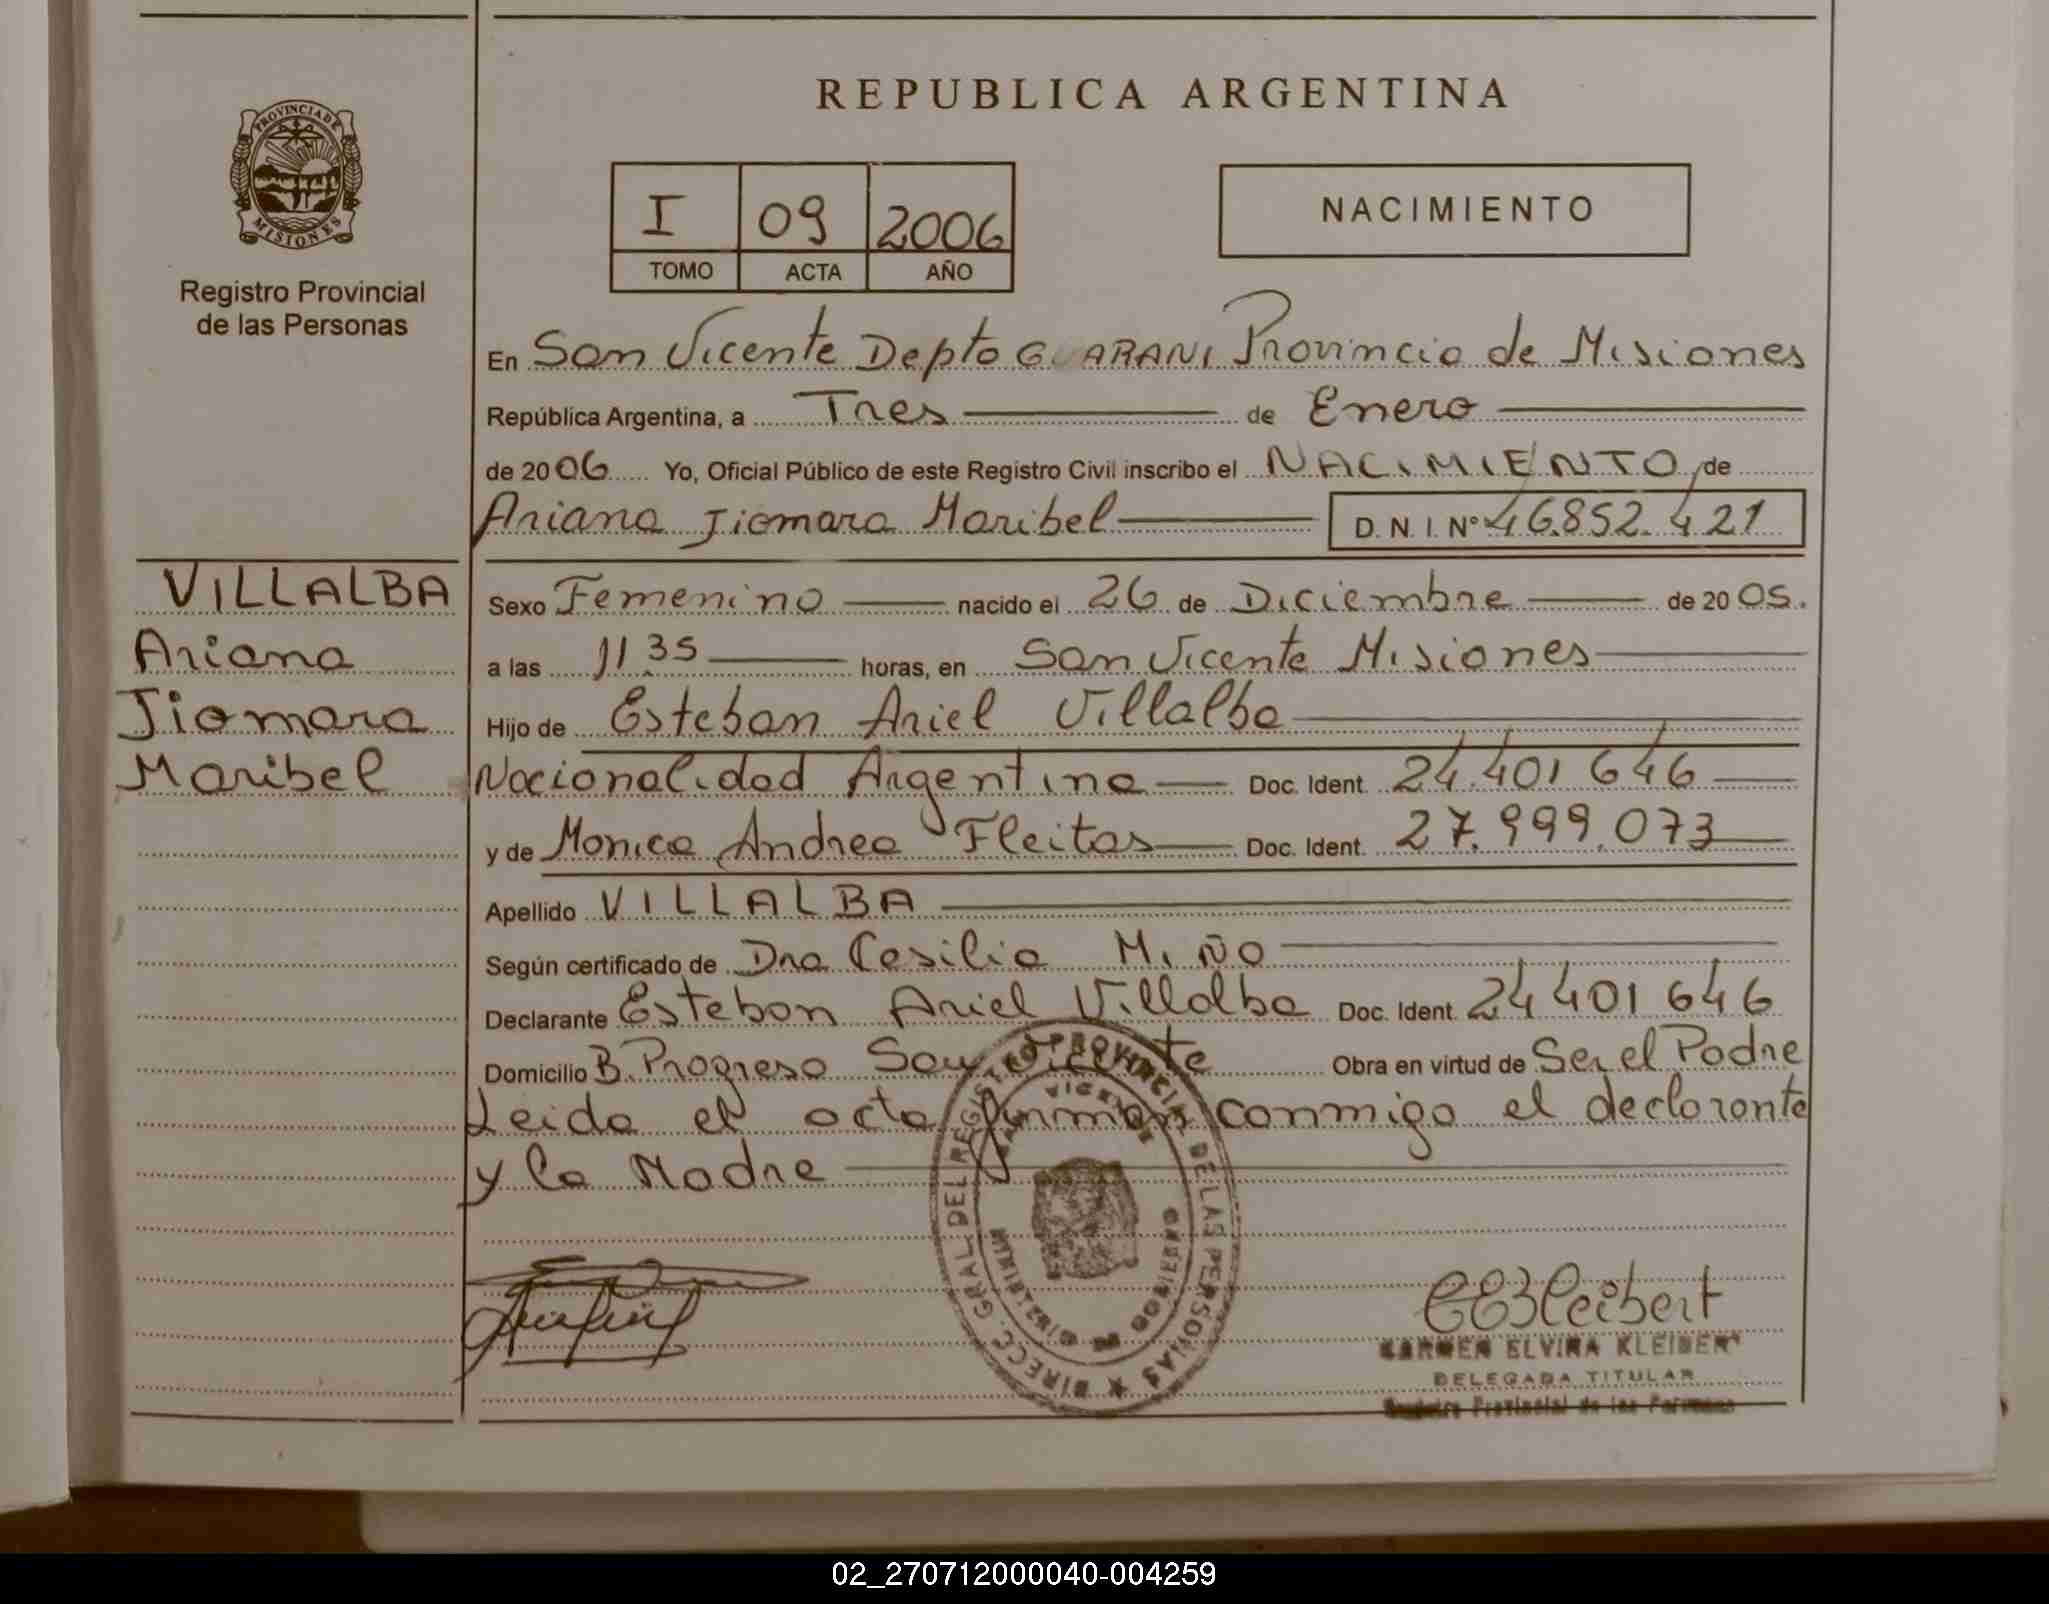 REPUBLICA ARGENTINA
PROVINCIA DE
MISIONES
Registro Provincial
de las Personas
I 09 2006
TOMO ACTA AÑO
NACIMIENTO
En San Vicente Depto GUARANI Provincia de Misiones
República Argentina, a Tres de Enero
de 2006 Yo, Oficial Público de este Registro Civil inscribo el NACIMIENTO de
Ariana Jiomara Maribel D. N. I. Nº 46.852.421
VILLALBA
Ariana
Jiomara
Maribel
Sexo Femenino nacido el 26 de Diciembre de 2005.
a las 11 35 horas, en San Vicente Misiones
Hijo de Esteban Ariel Villalba
Nacionalidad Argentina Doc. Ident. 24.401 646
y de Monica Andrea Fleitas Doc. Ident. 27.999.073
Apellido VILLALBA
Según certificado de Dra Cesilia Miño
Declarante Esteban Ariel Villalba Doc. Ident. 24 401 646
Domicilio B. Progreso San Vicente Obra en virtud de Ser el Padre
Leida el acta firman conmigo el declarante
y la Madre
DIRECC. GRAL. DEL REGISTRO PROVINCIAL DE LAS PERSONAS
VICENTE
MINISTERIO DE GOBIERNO
CEKleibert
CARMEN ELVIRA KLEIBERT
DELEGADA TITULAR
Registro Provincial de las Personas
02_270712000040-004259